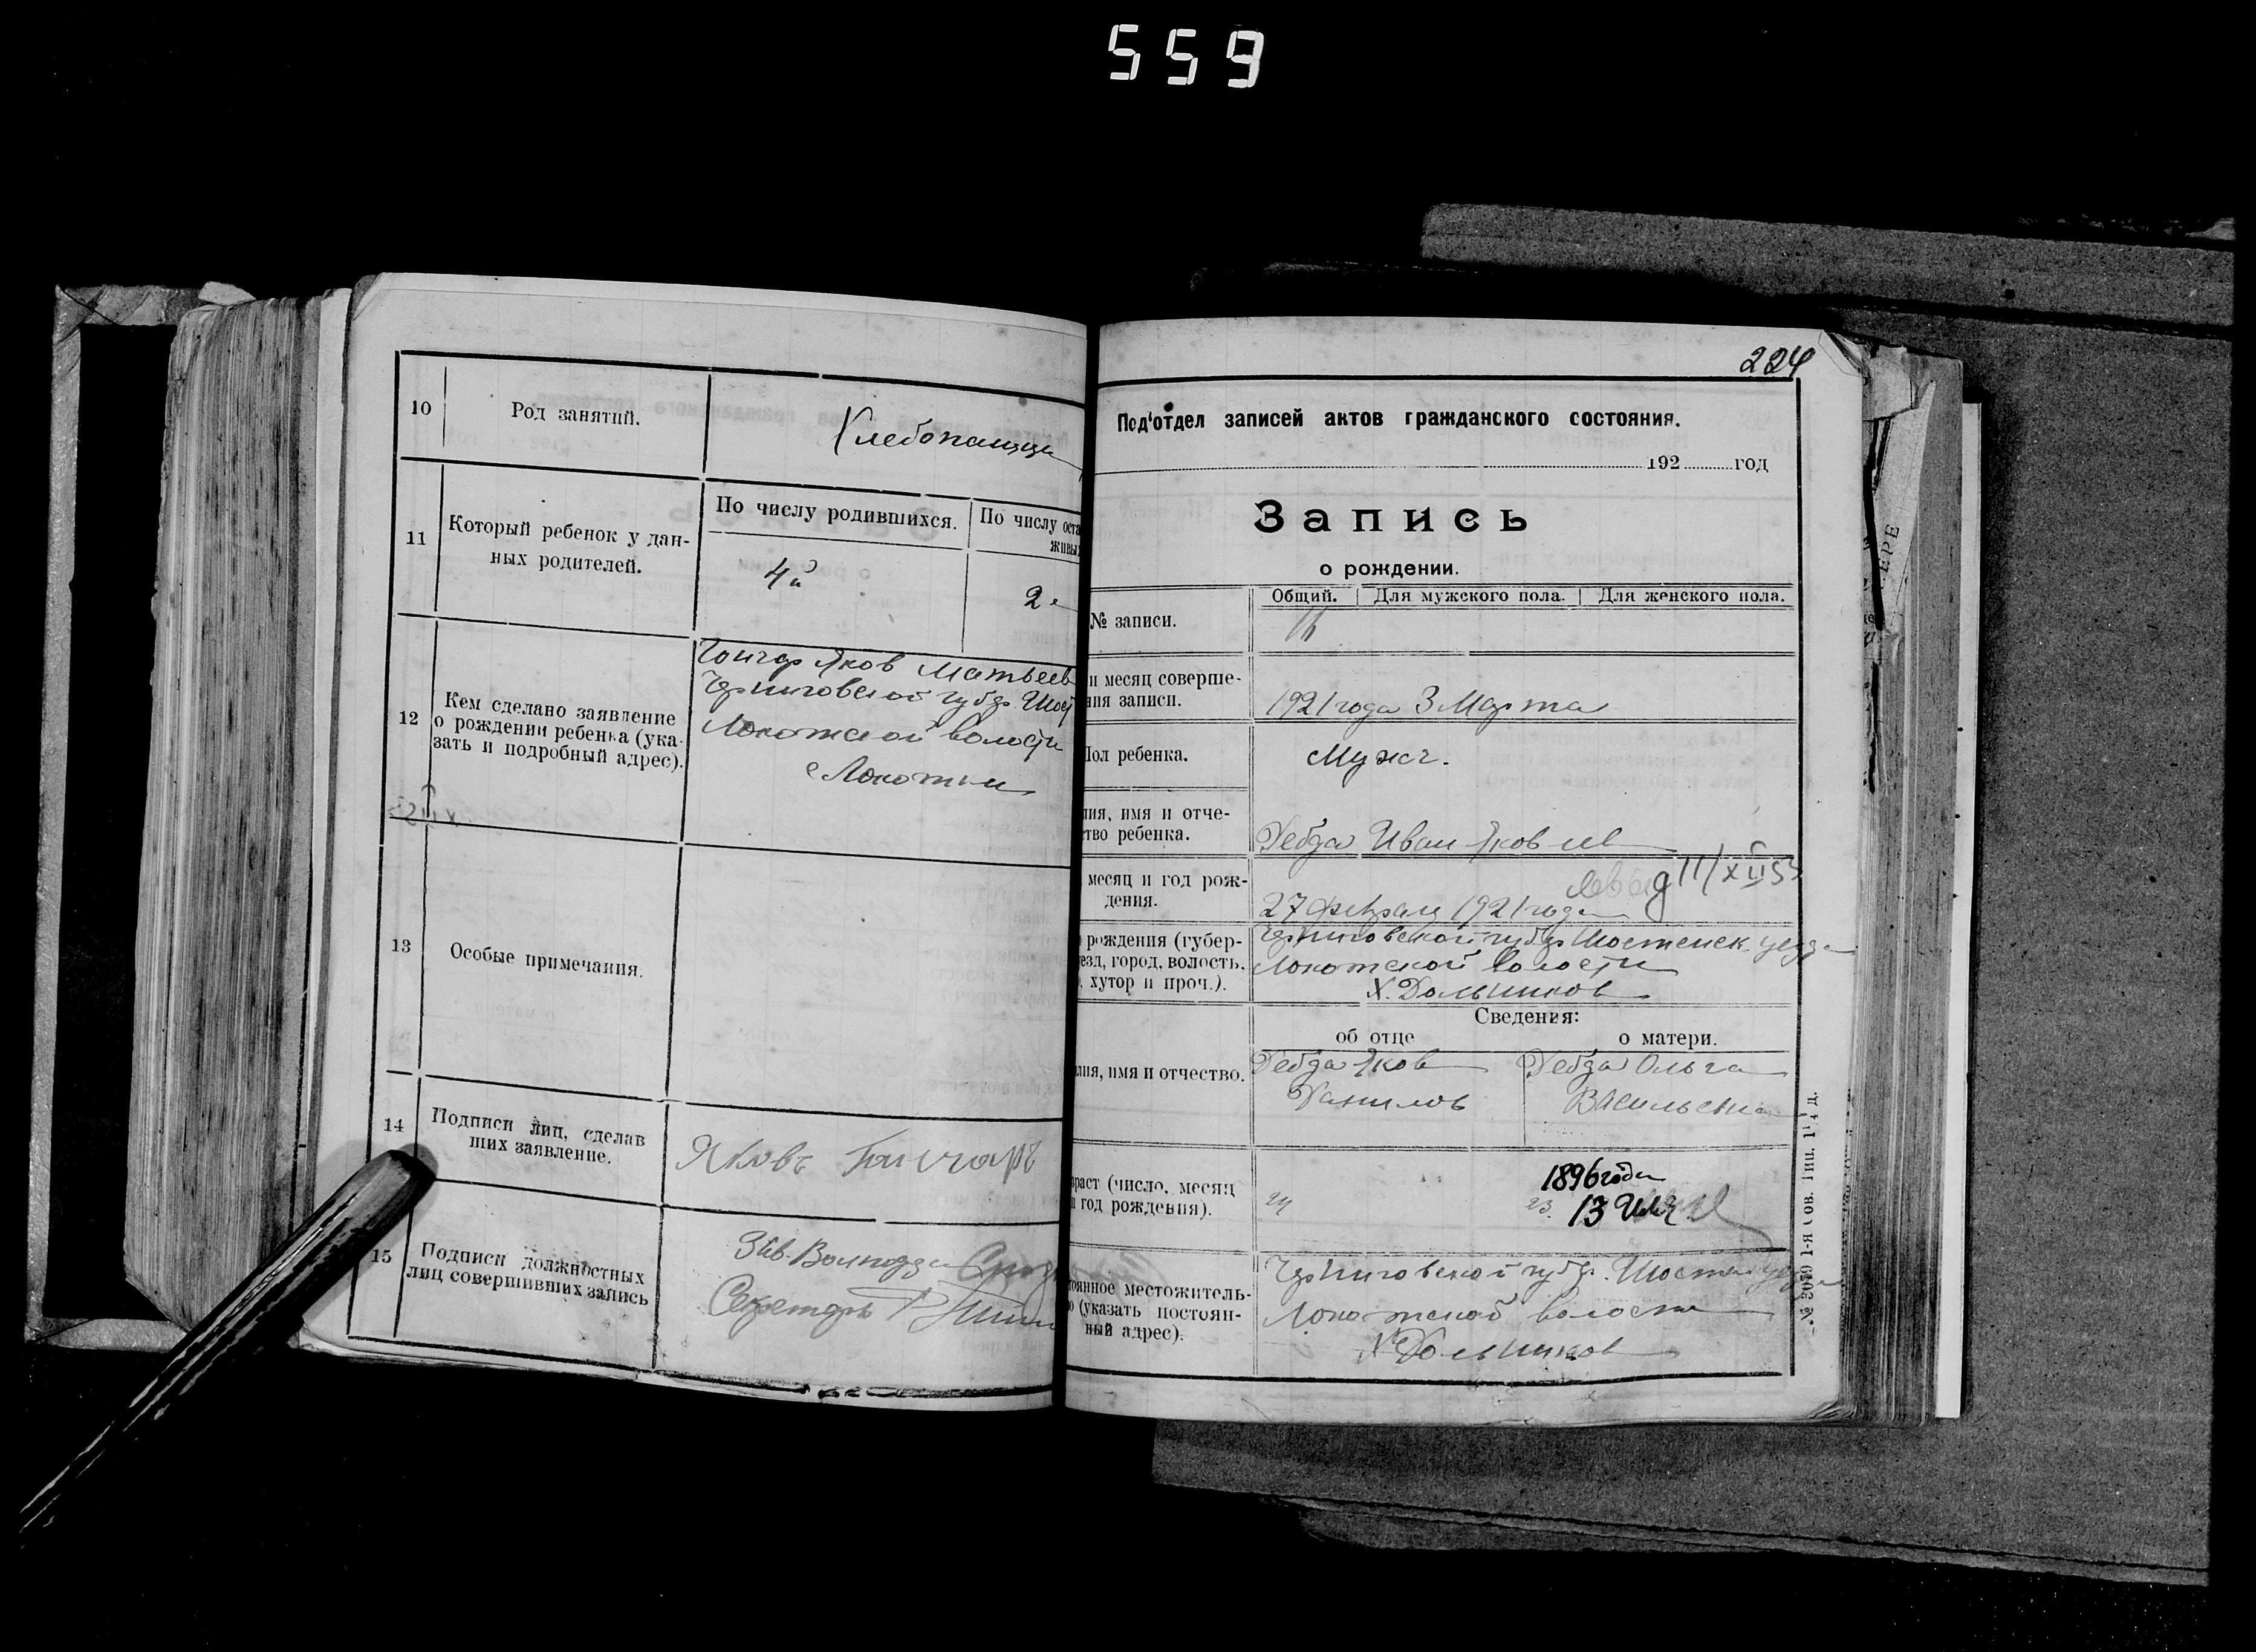 559
10
Род занятий.
Хлебопашцы
11
Который ребенок у дан-
ных родителей.
По числу родившихся.
По числу оста
живых
4й
2й
12
Кем сделано заявление
о рождении ребенка (ука-
зать и подробный адрес).
Гончар Яков Матвеев
Черниговской губер. Шост
Локотской волости
с Локотки
13
Особые примечания.
14
Подписи лиц, сделав
ших заявление.
Яковъ Гончаръ
15
Подписи должностных
лиц совершивших запись
Зав.
Секретарь
224
Под‘отдел записей актов гражданского состояния.
192 год
Запись
о рождении.
№ записи.
Общий. Для мужского пола. Для женского пола.
и месяц соверше-
ния записи.
1921 года 3 Марта
Пол ребенка.
Мужч.
лия, имя и отче-
ство ребенка.
Дебда Иван Яковлев
месяц и год рож-
дения.
27 февраля 1921 года
11/XII 53
рождения (губер-
езд, город, волость,
хутор и проч.).
Черниговской губер Шостенск. уезда
Локотской волости
Х. Дольшиков
Сведения:
об отце
о матери.
лия, имя и отчество.
Дебда Яков
Данилов
Дебда Ольга
Васильевна
раст (число, месяц
и год рождения).
24
1896 года
23. 13
оянное местожитель-
о (указать постоян-
ный адрес).
Черниговской губер. Шостен уезда
Локотской волости
Х Дольшиков